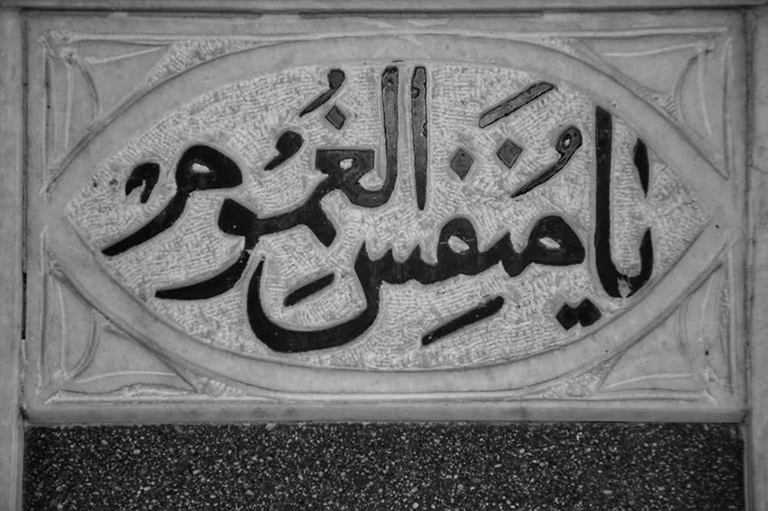 يا منفس الغموم